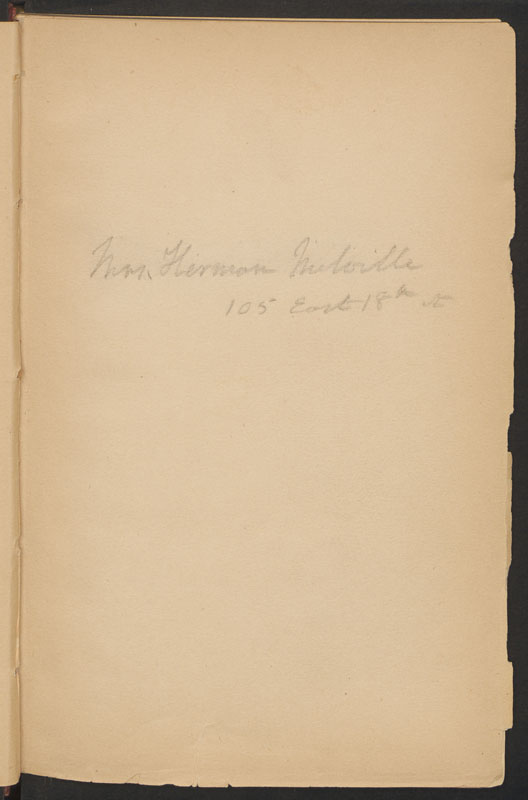 Mrs. Herman Melville
105 East 18th St